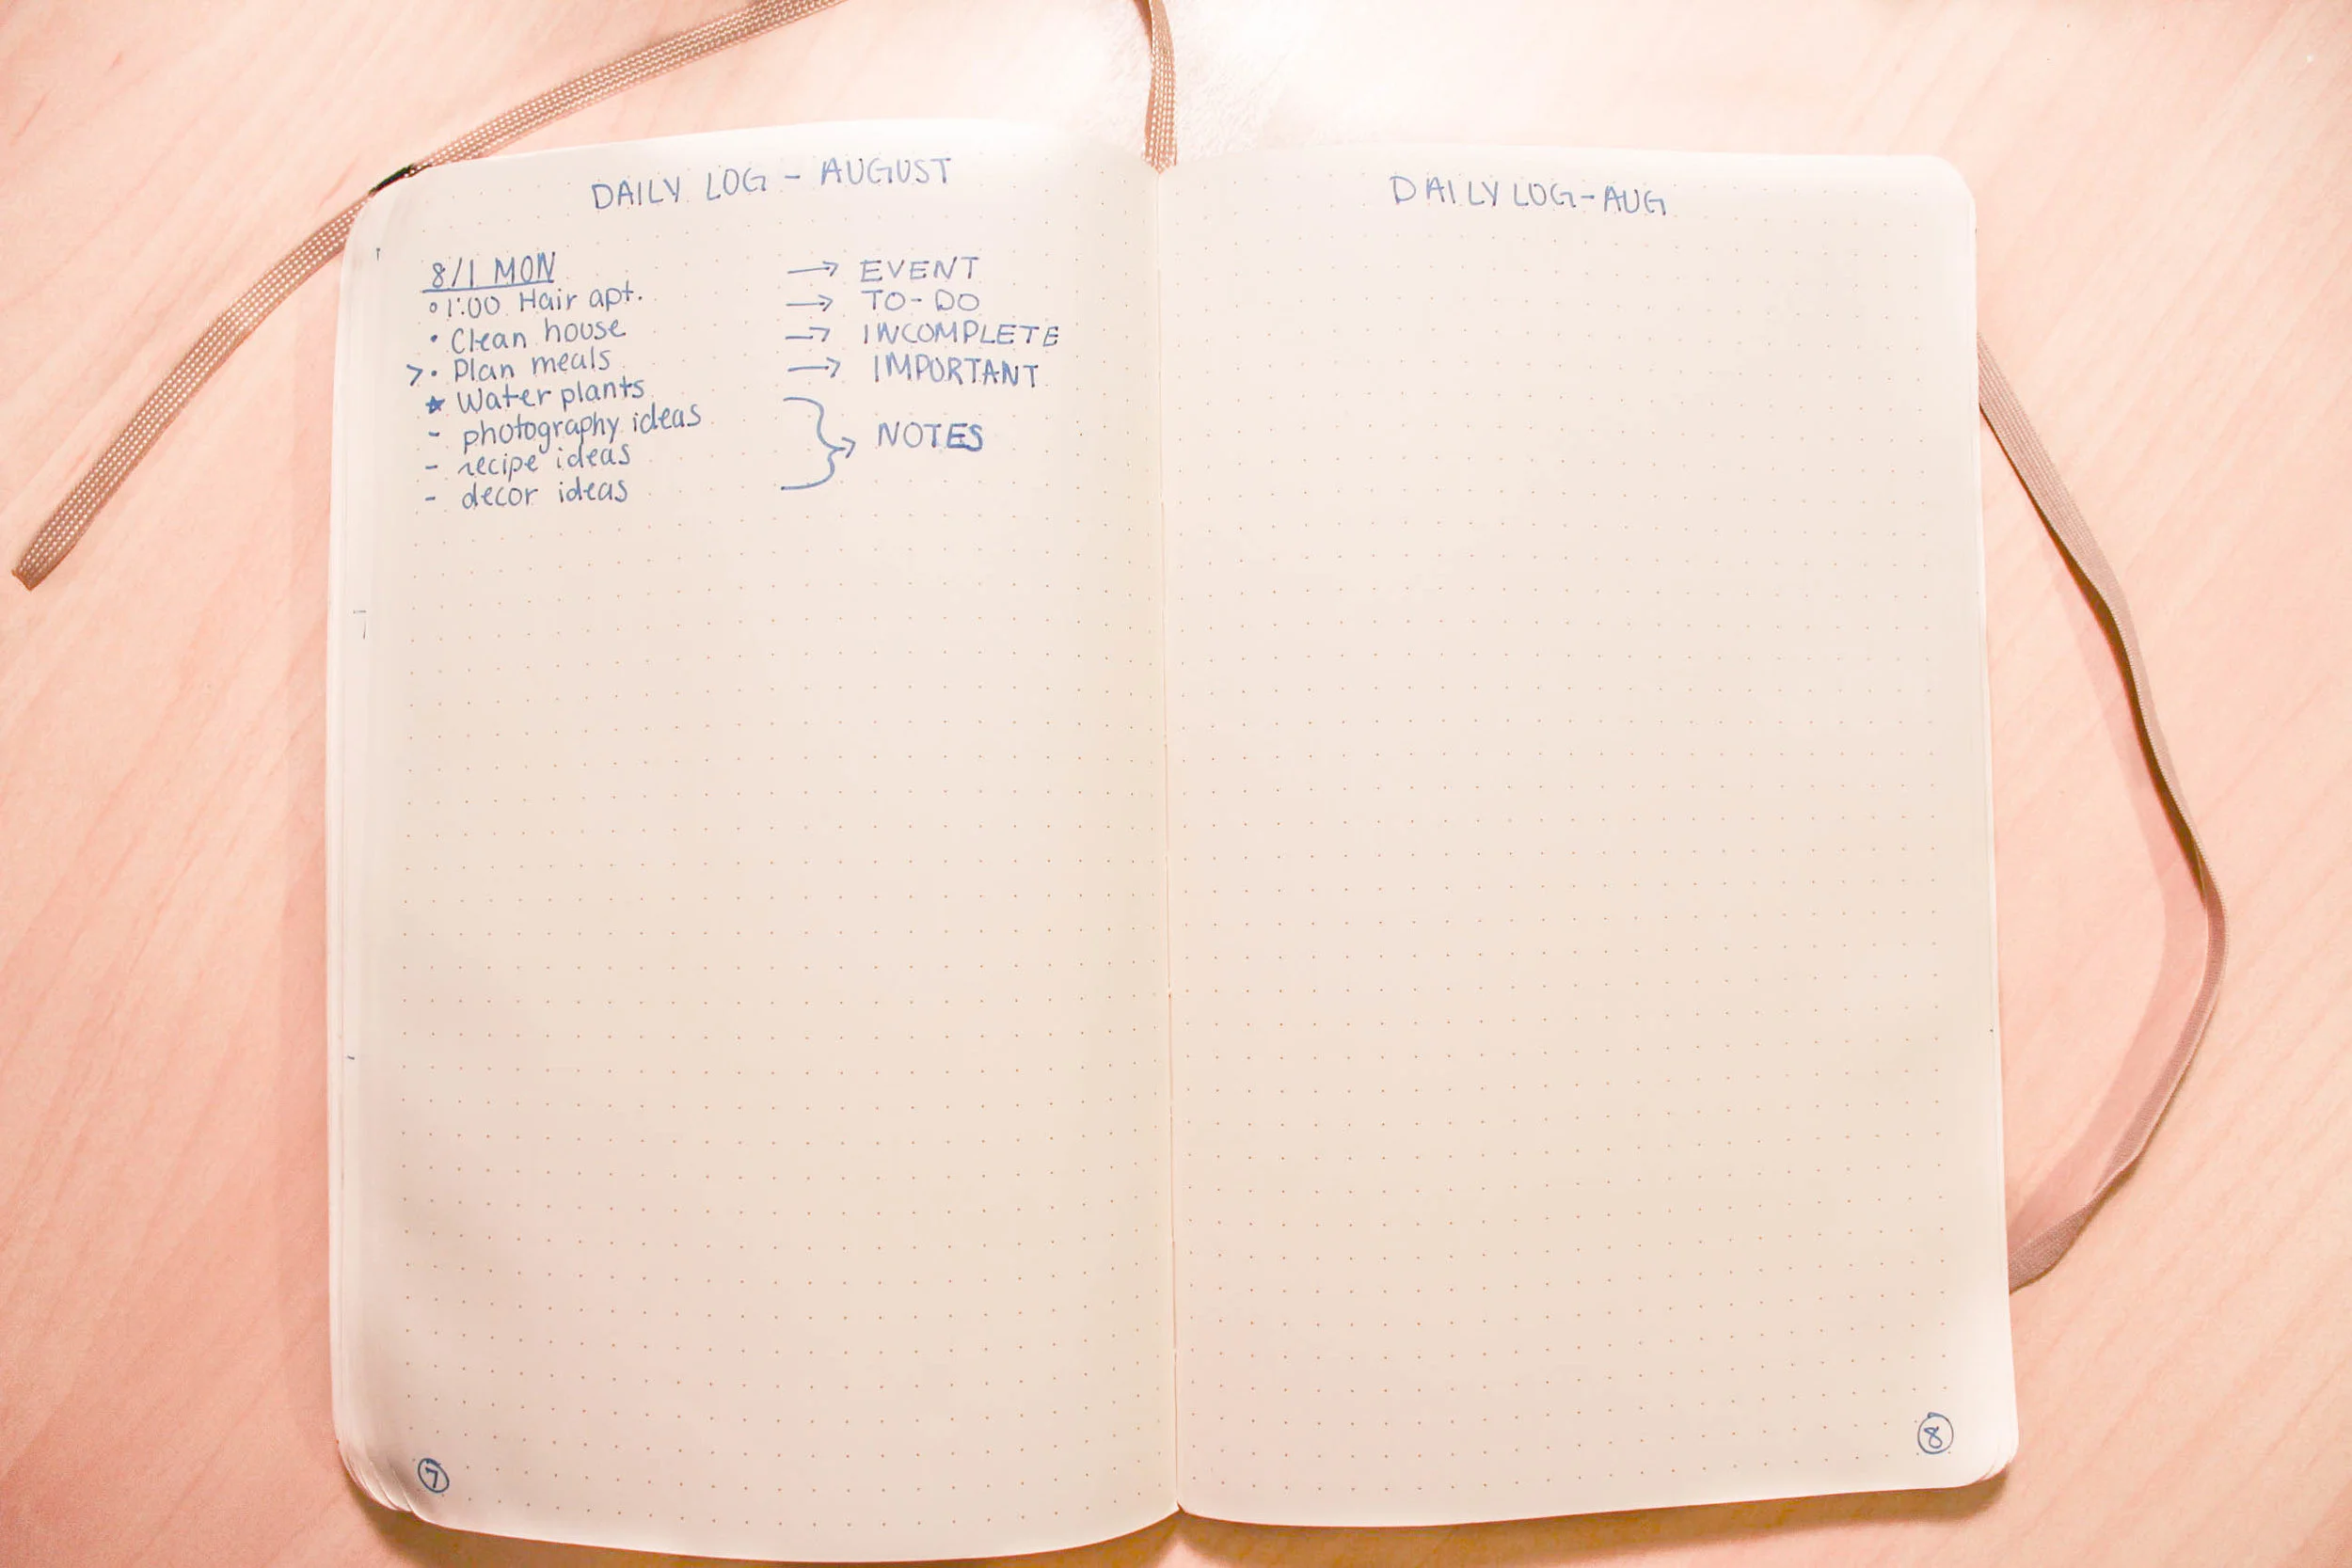 DAILY LOG - AUGUST
8/1 MON → EVENT
° 1:00 Hair apt. → TO-DO
• Clean house → INCOMPLETE
>• Plan meals → IMPORTANT
★ Water plants
- photography ideas } → NOTES
- recipe ideas
- decor ideas
7
DAILY LOG-AUG
8